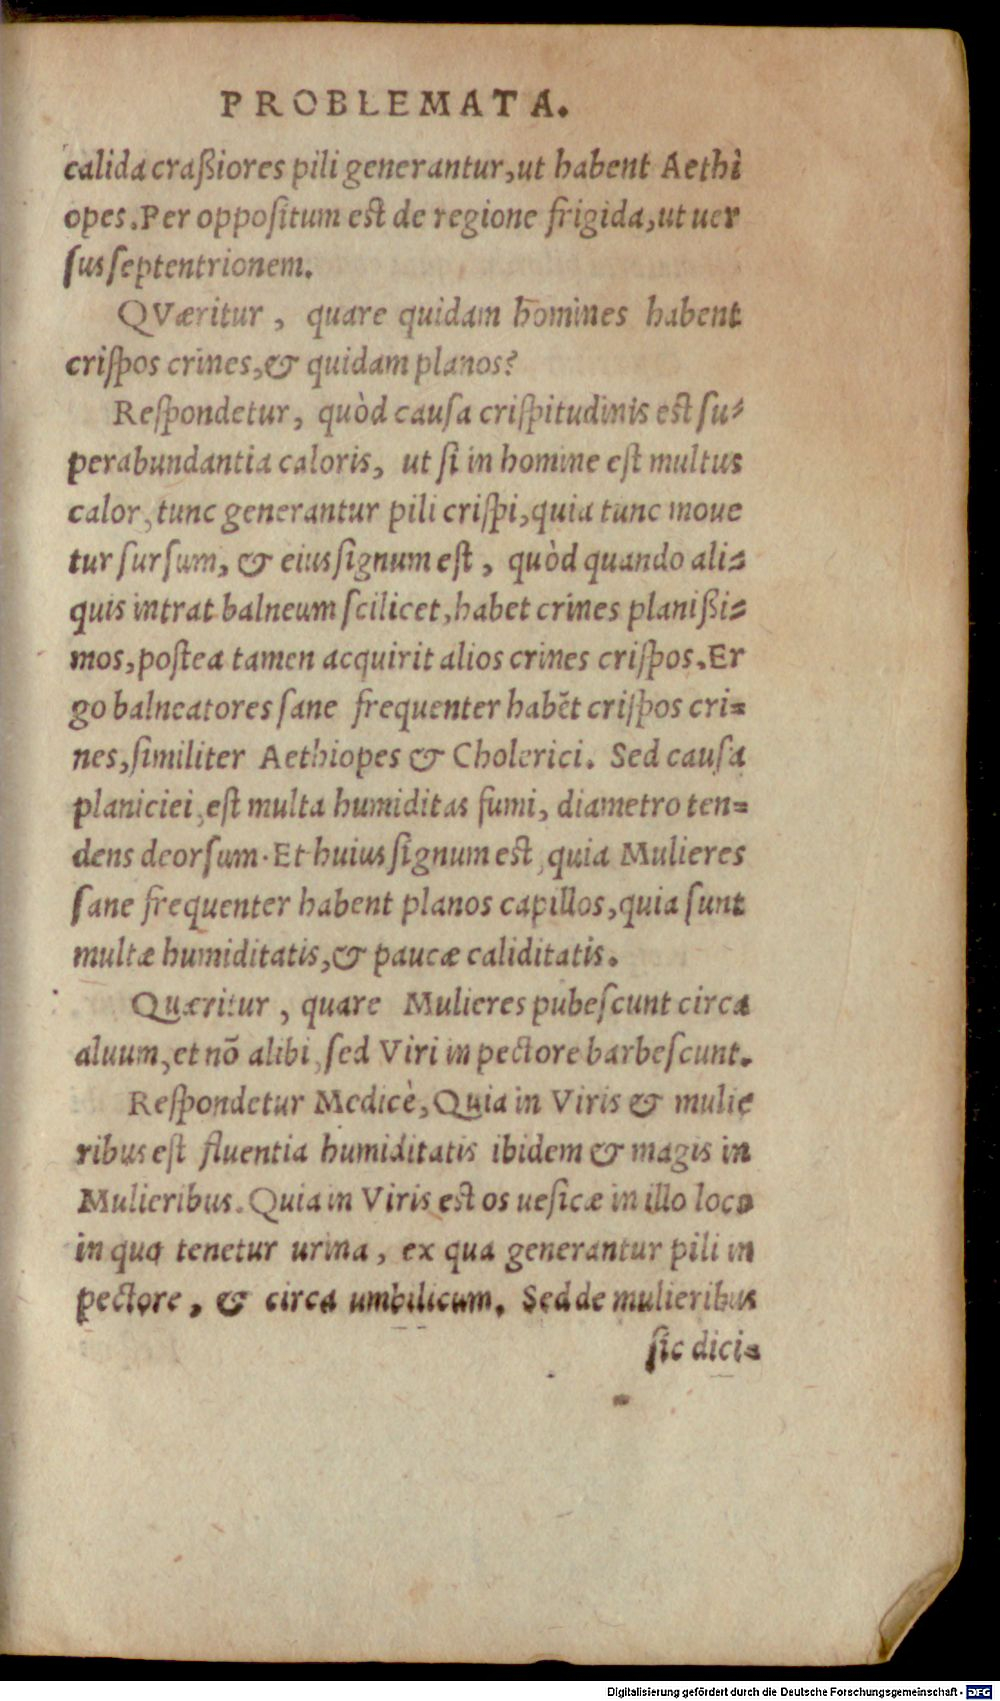 PROBLEMATA.
calida craßiores pili generantur, ut habent Aethì
opes. Per oppoſitum eſt de regione frigida, ut uer
ſus ſeptentrionem.
QVæritur, quare quidam homines habent
criſpos crines, & quidam planos?
Reſpondetur, quòd cauſa criſpitudinis eſt ſu-
perabundantia caloris, ut ſi in homine eſt multus
calor, tunc generantur pili criſpi, quia tunc moue
tur ſurſum, & eius ſignum eſt, quòd quando ali-
quis intrat balneum ſcilicet, habet crines planißi-
mos, poſtea tamen acquirit alios crines criſpos. Er
go balneatores ſane frequenter habẽt criſpos cri-
nes, ſimiliter Aethiopes & Cholerici. Sed cauſa
planiciei, eſt multa humiditas fumi, diametro ten-
dens deorſum. Et huius ſignum eſt, quia Mulieres
ſane frequenter habent planos capillos, quia ſunt
multæ humiditatis, & paucæ caliditatis.
Quæritur, quare Mulieres pubeſcunt circa
aluum, et nõ alibi, ſed Viri in pectore barbeſcunt.
Reſpondetur Medicè, Quia in Viris & mulie
ribus eſt fluentia humiditatis ibidem & magis in
Mulieribus. Quia in Viris eſt os ueſicæ in illo loco
in quo tenetur urina, ex qua generantur pili in
pectore, & circa umbilicum. Sed de mulieribus
ſic dici-
Digitalisierung gefördert durch die Deutsche Forschungsgemeinschaft - DFG